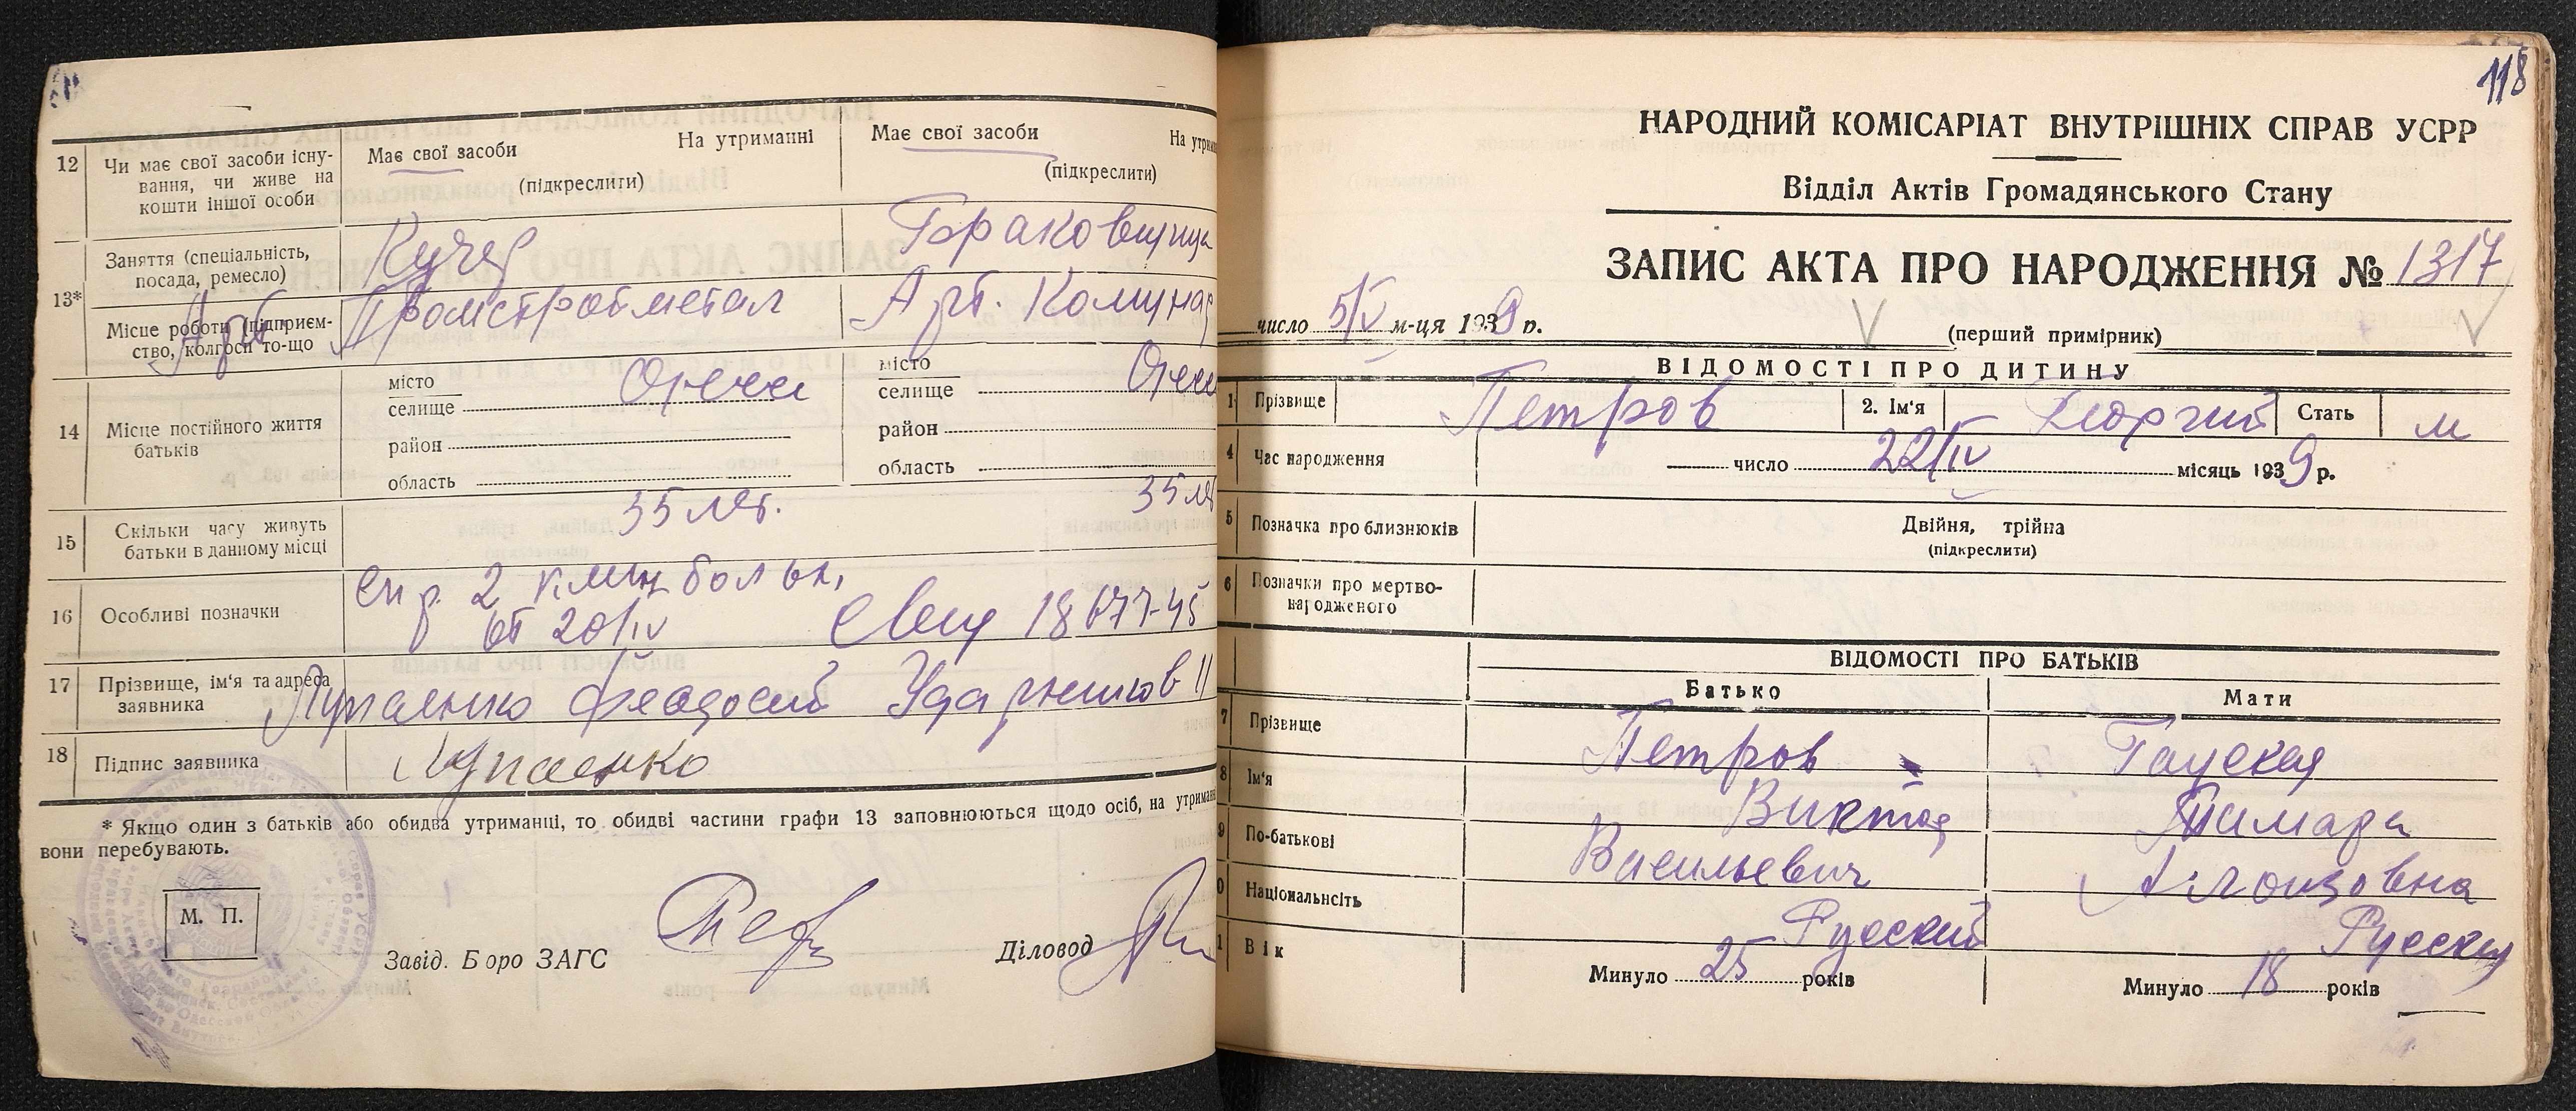 12
Чи має свої засоби існу-
вання, чи живе на
кошти іншої особи
Має свої засоби
На утриманні
(підкреслити)
Має свої засоби
На утрим
(підкреслити)
13*
Заняття (спеціальність,
посада, ремесло)
Кучер
Місце роботи (підприєм-
ство, колгосп то-що
Арт. Промстройметал
Арт. Комунар
14
Місце постійного життя
батьків
місто
селище
Одесса
район
область
місто
селище
Одесс
район
область
15
Скільки часу живуть
батьки в данному місці
35 лет.
35 лет
16
Особливі позначки
Спр. 2 клин больн.
от 20/IV
17
Прізвище, ім'я та адреса
заявника
Феодосий Ударников 11
18
Підпис заявника
* Якщо один з батьків або обидва утриманці, то обидві частини графи 13 заповнюються щодо осіб, на утриман
вони перебувають.
М. П.
Завід. Бюро ЗАГС
Діловод
118
НАРОДНИЙ КОМІСАРІАТ ВНУТРІШНІХ СПРАВ УСРР
Відділ Актів Громадянського Стану
ЗАПИС АКТА ПРО НАРОДЖЕННЯ № 1317
число 5/V м-ця 1939 р.
(перший примірник)
ВІДОМОСТІ ПРО ДИТИНУ
1 Прізвище Петров 2. Ім'я Георгий Стать м
4 Час народження число 22/IV місяць 1939 р.
5 Позначка про близнюків Двійня, трійня
(підкреслити)
6 Позначки про мертво-
народженого
ВІДОМОСТІ ПРО БАТЬКІВ
Батько Мати
7 Прізвище Петров Гауская
8 Ім'я Виктор Тамара
9 По-батькові Васильевич
0 Національність Русский Русская
1 Вік Минуло 25 років Минуло 18 років